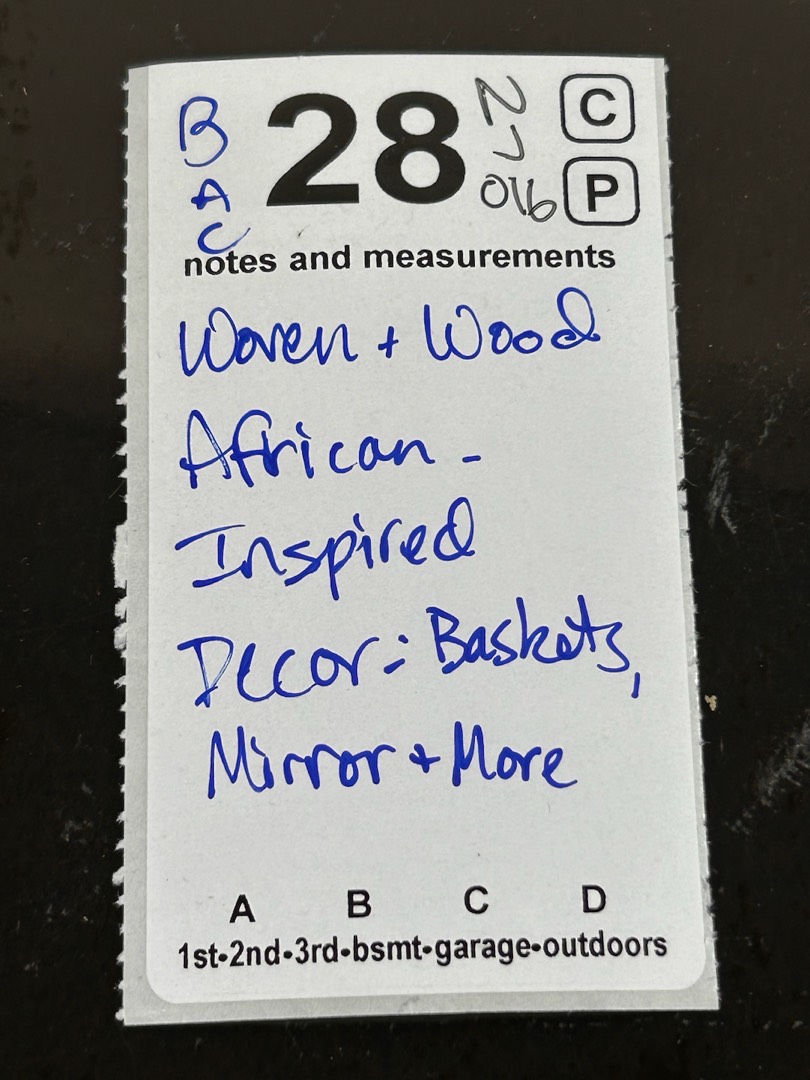 B 28 N C
A J P
C 016
notes and measurements
Woven + Wood
African -
Inspired
Decor: Baskets,
Mirror + More
A B C D
1st•2nd•3rd•bsmt•garage•outdoors